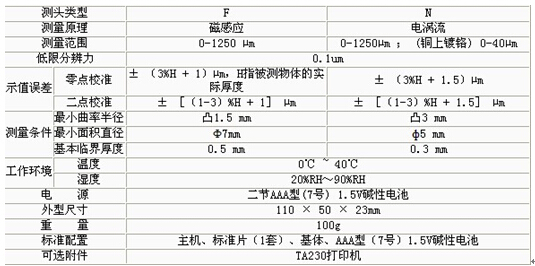 测头类型 F N
测量原理 磁感应 电涡流
测量范围 0-1250 μm 0-1250μm ；（铜上镀铬）0-40μm
低限分辨力 0.1um
示值误差 零点校准 ± （3%H + 1）μm，H指被测物体的实际厚度 ± （3%H + 1.5）μm
二点校准 ± [（1-3）%H + 1] μm ± [（1-3）%H + 1.5] μm
测量条件 最小曲率半径 凸1.5 mm 凸3 mm
最小面积直径 Φ7mm ф5 mm
基本临界厚度 0.5 mm 0.3 mm
工作环境 温度 0℃ ~ 40℃
湿度 20%RH～90%RH
电 源 二节AAA型(7号) 1.5V碱性电池
外型尺寸 110 × 50 × 23mm
重 量 100g
标准配置 主机、标准片（1套）、基体、AAA型（7号）1.5V碱性电池
可选附件 TA230打印机